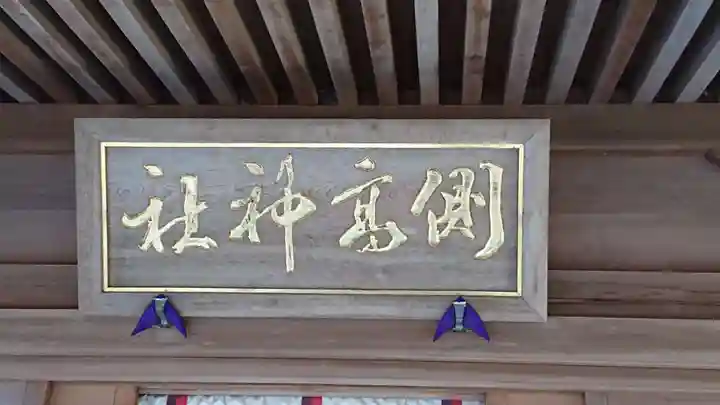 側高神社